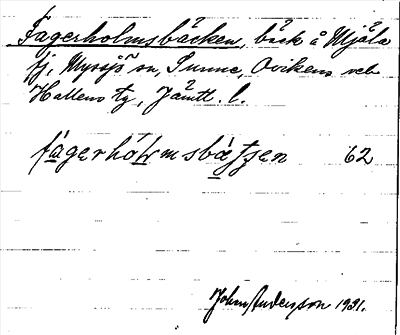 Fagerholmsbäcken, bäck å Mjäla
fj, Myssjö sn, Sunne, Ovikens och
Hallens tg, Jämtl. l.
fágerhòłmsbàtʃen 62
John Anderson 1931.